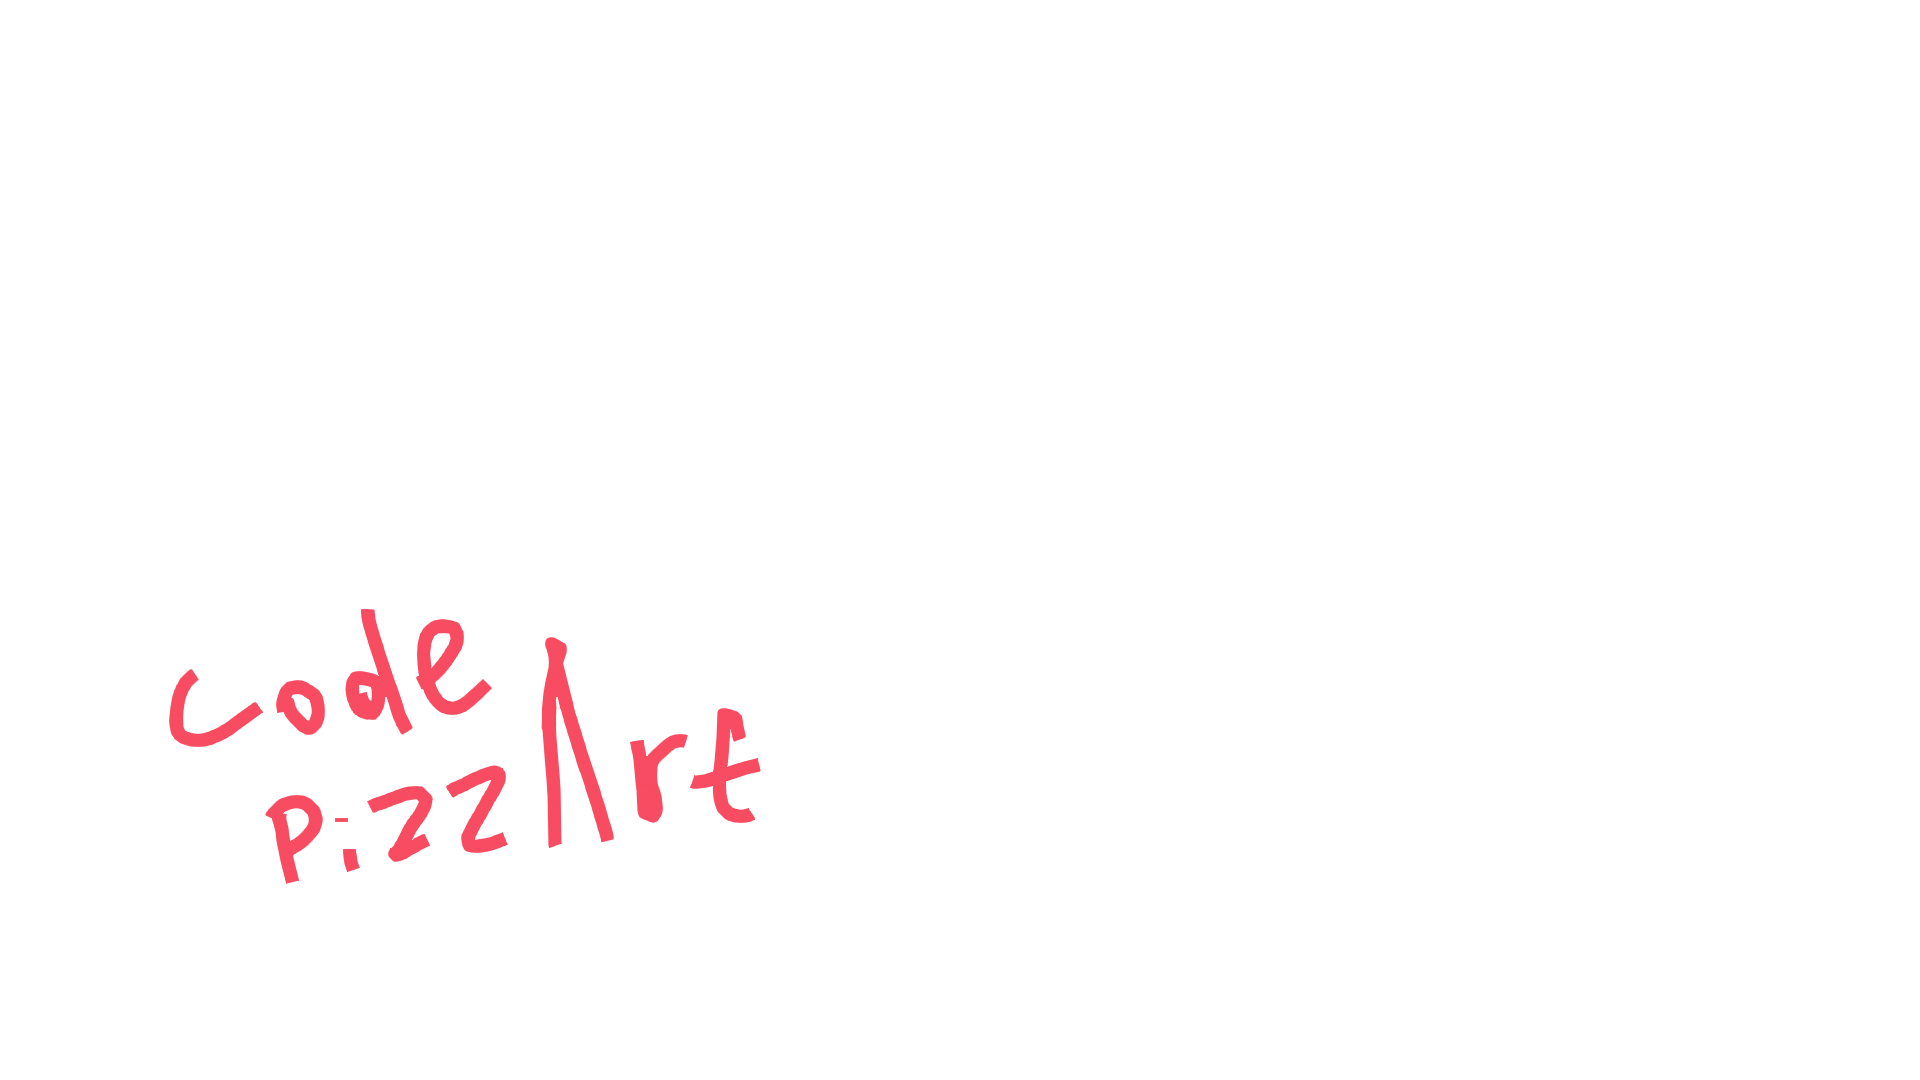 Code
PizzArt